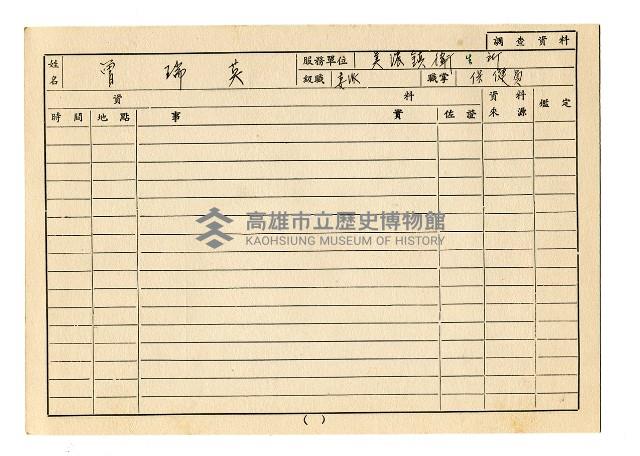 調查資料
姓名 曾瑞英 服務單位 美濃鎮衛生所
級職 委派 職掌 保健員
資料 資料來源 鑑定
時間 地點 事實 佐證
高雄市立歷史博物館
KAOHSIUNG MUSEUM OF HISTORY
( )